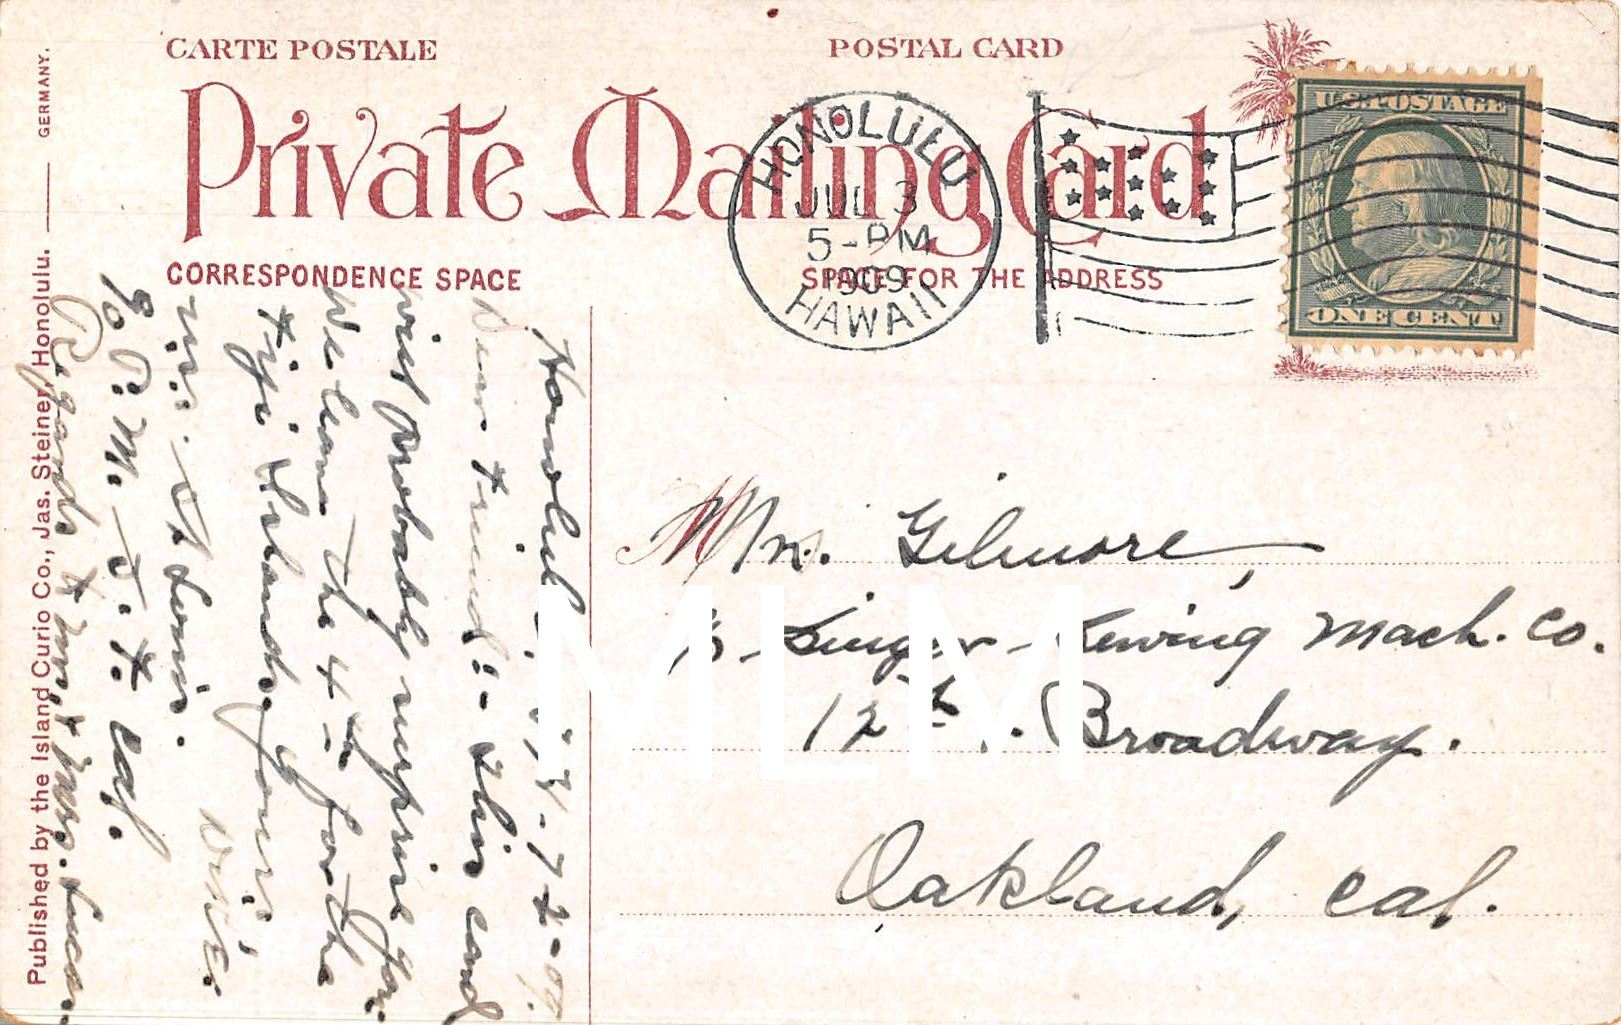 CARTE POSTALE
POSTAL CARD
Private Mailing Card
CORRESPONDENCE SPACE
SPACE FOR THE ADDRESS
HONOLULU
JUL 3
5-PM
1909
HAWAII
U.S. POSTAGE
ONE CENT
Mr. Gilmore,
℅ Singer Sewing Mach. Co.
12th. Broadway.
Oakland, Cal.
Honolulu, 7-2-09.
Dear Friend:- This card
will probably surprise you.
We leave the 4th for the
Fiji Islands. Yours,
Write
% P. M. S. F. Cal.
Regards to Mr. & Mrs. Lucas.
Published by the Island Curio Co., Jas. Steiner, Honolulu. GERMANY.
MLM